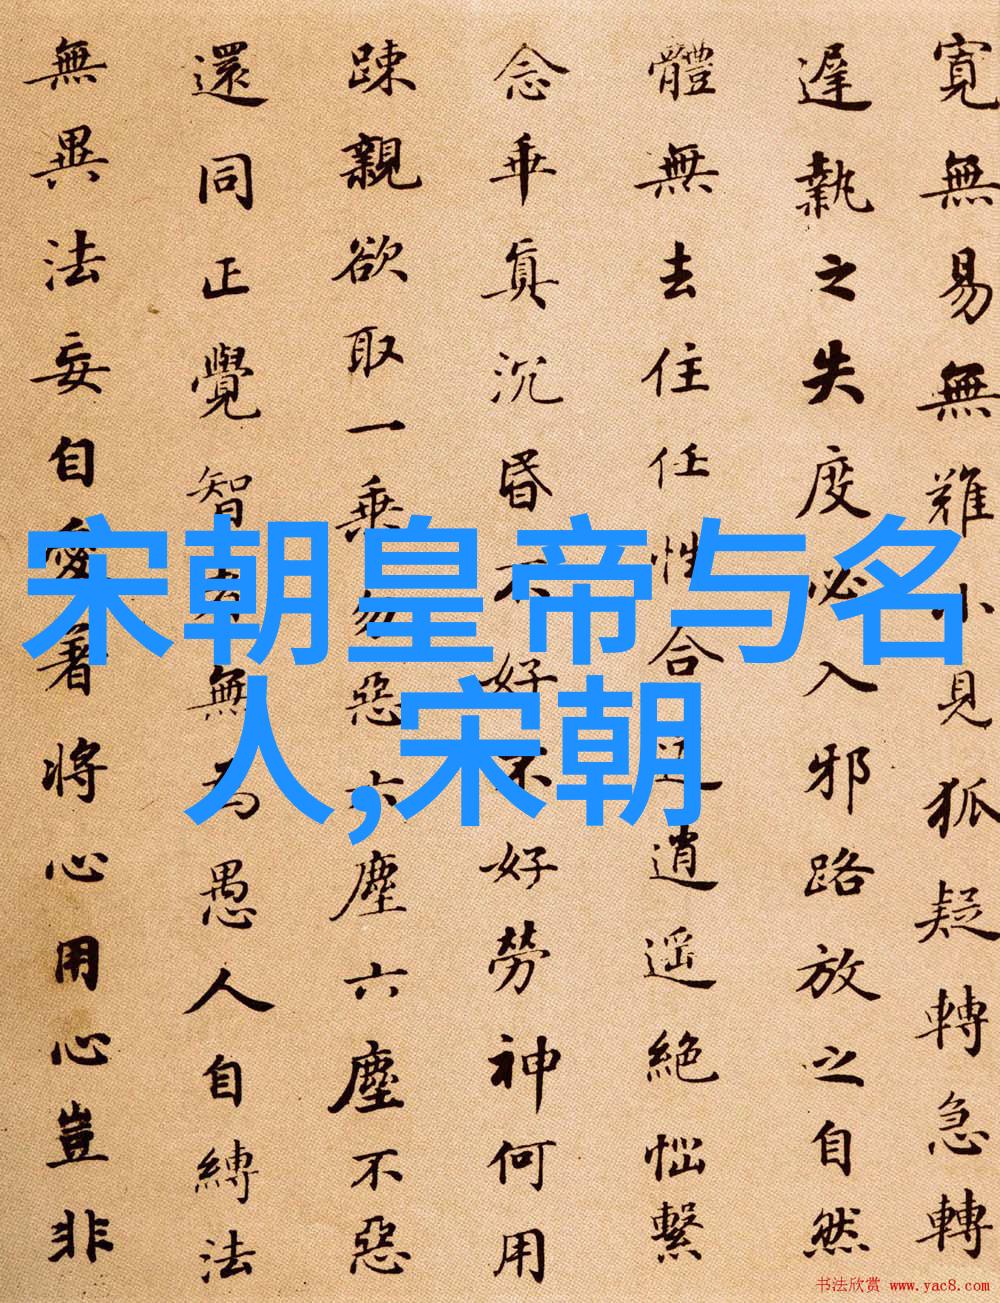 寬無易無難小見狐疑轉急轉
遲執之失度必入邪路放之自然
體無去住任性合道逍遥絶惱繫
念乖真沉昏不好不好勞神何用
踈親欲取一乘勿惡六塵六塵不惡
還同正覺智者無為愚人自縛法
無異法妄自愛著將心用心豈非
宋朝皇帝与名
人,宋朝
书法欣赏 www.yac8.com